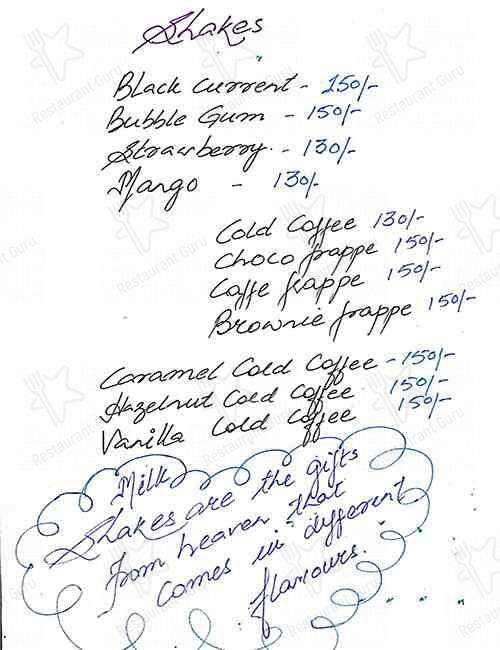 Shakes
Black Current - 150/-
Bubble Gum - 150/-
Strawberry - 130/-
Mango - 130/-
Cold Coffee 130/-
Choco frappe 150/-
Caffe frappe 150/-
Brownie frappe 150/-
Caramel Cold Coffee - 150/-
Hazelnut Cold Coffee 150/-
Vanilla Cold Coffee 150/-
Milk
Shakes are the gifts
from heaven that
comes in different
flavours.
Restaurant Guru